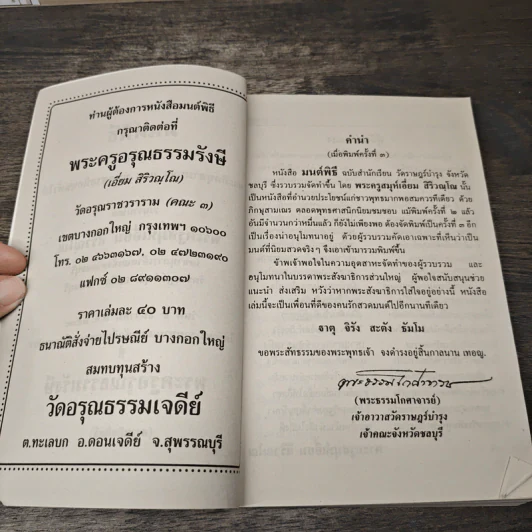 ท่านผู้ต้องการหนังสือมนต์พิธี
กรุณาติดต่อที่
พระครูอรุณธรรมรังษี
(เอี่ยม สิริวณฺโณ)
วัดอรุณราชวราราม (คณะ ๓)
เขตบางกอกใหญ่ กรุงเทพฯ ๑๐๖๐๐
โทร. ๐๒ ๔๖๖๓๑๖๗, ๐๒ ๔๗๒๓๑๙๐
แฟกซ์ ๐๒ ๘๙๑๑๓๐๗
ราคาเล่มละ ๔๐ บาท
ธนาณัติสั่งจ่ายไปรษณีย์ บางกอกใหญ่
สมทบทุนสร้าง
วัดอรุณธรรมเจดีย์
ต.ทะเลบก อ.ดอนเจดีย์ จ.สุพรรณบุรี
คำนำ
(เมื่อพิมพ์ครั้งที่ ๓)
หนังสือ มนต์พิธี ฉบับสำนักเรียน วัดราษฎร์บำรุง จังหวัด
ชลบุรี ซึ่งรวบรวมจัดทำขึ้น โดย พระครูสมุห์เอี่ยม สิริวณฺโณ นั้น
เป็นหนังสือที่อำนวยประโยชน์แก่ชาวพุทธมากพอสมควรทีเดียว ด้วย
ภิกษุสามเณร ตลอดพุทธศาสนิกนิยมชมชอบ แม้พิมพ์ครั้งที่ ๒ แล้ว
อันมีจำนวนกว่าหมื่นแล้ว ก็ยังไม่เพียงพอ ต้องจัดพิมพ์เป็นครั้งที่ ๓ อีก
เป็นเรื่องน่าอนุโมทนาอยู่ ด้วยผู้รวบรวมคัดเอาเฉพาะที่เห็นว่าเป็น
มนต์ที่นิยมสวดจริงๆ จึงเอาเข้ามารวมพิมพ์ขึ้น
ข้าพเจ้าพอใจในความอุตสาหะจัดทำของผู้รวบรวม และ
อนุโมทนาในบรรดาพระสังฆาธิการส่วนใหญ่ ผู้พอใจสนับสนุนช่วย
แนะนำ ส่งเสริม หวังว่าหากพระสังฆาธิการใส่ใจอยู่อย่างนี้ หนังสือ
เล่มนี้จะเป็นเพื่อนที่ดีของคนรักสวดมนต์ไปอีกนานทีเดียว
ฐาตุ จิรัง สะตัง ธัมโม
ขอพระสัทธรรมของพระพุทธเจ้า จงดำรงอยู่สิ้นกาลนาน เทอญ.
(พระธรรมโกศาจารย์)
เจ้าอาวาสวัดราษฎร์บำรุง
เจ้าคณะจังหวัดชลบุรี